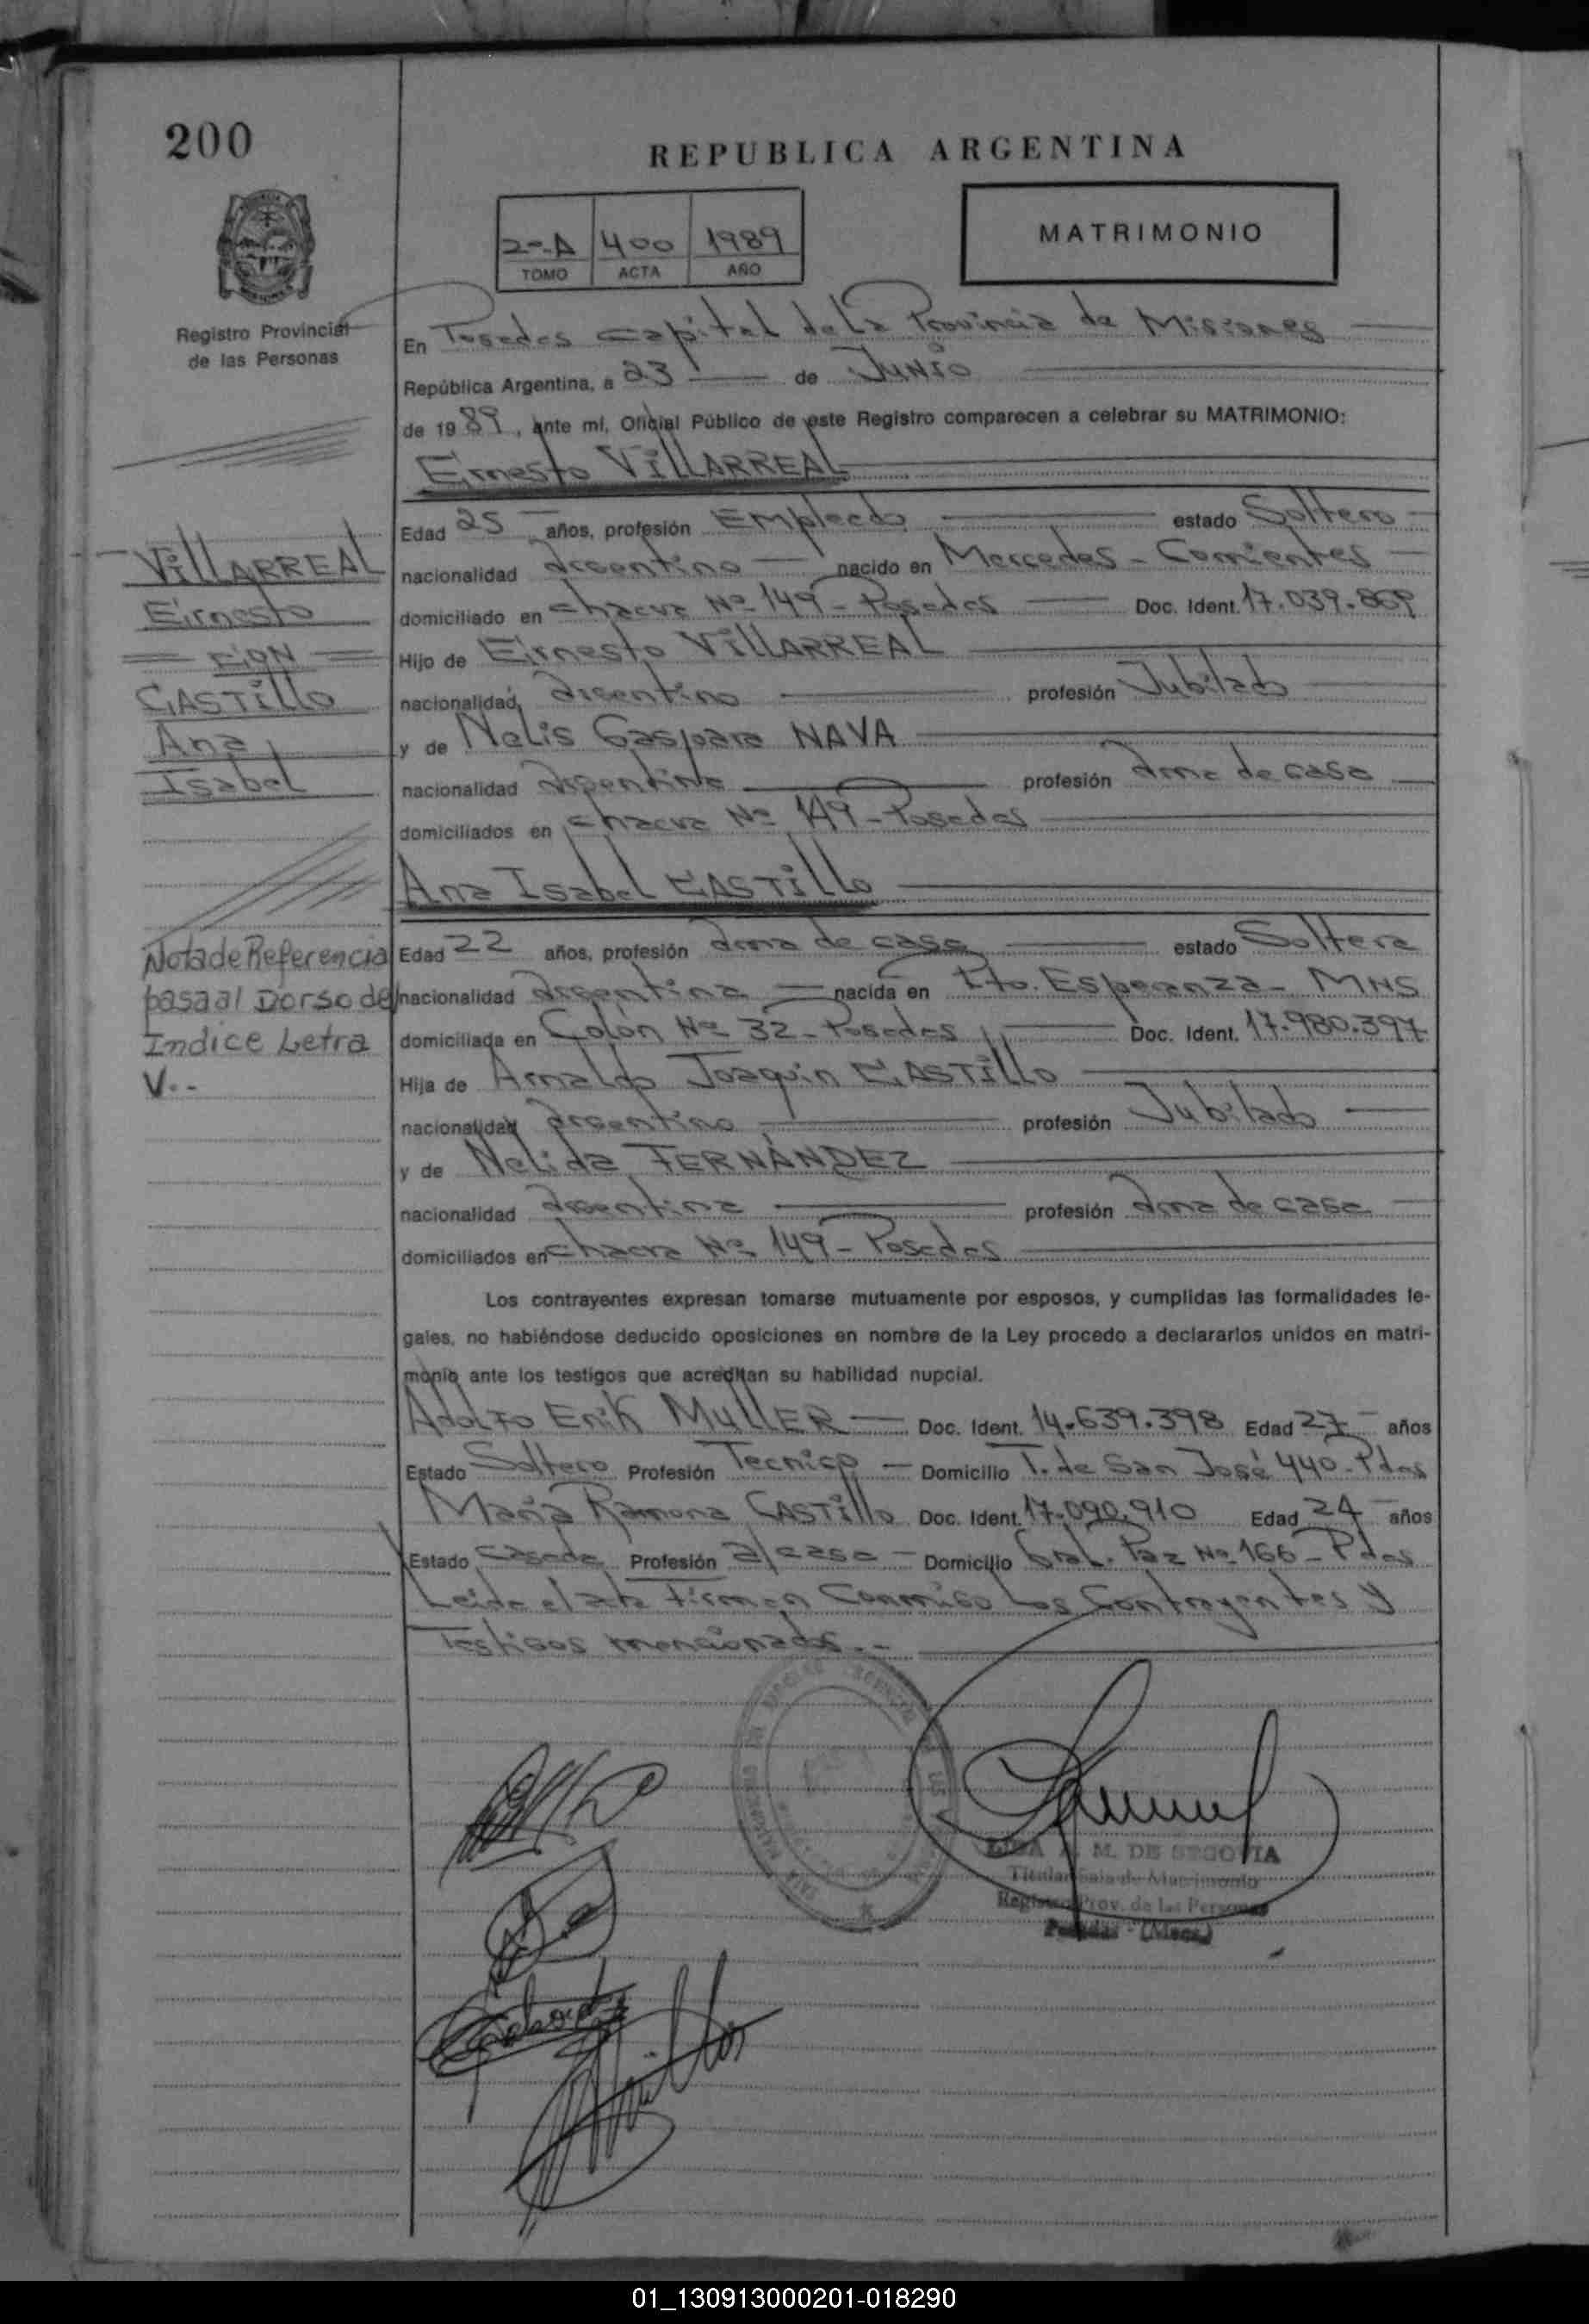 200
REPUBLICA ARGENTINA
2º-A 400 1989
TOMO ACTA AÑO
MATRIMONIO
Registro Provincial
de las Personas
En Posadas Capital de la Provincia de Misiones
República Argentina, a 23 de Junio
de 1989, ante mí, Oficial Público de este Registro comparecen a celebrar su MATRIMONIO:
Ernesto VILLARREAL
Edad 25 años, profesión Empleado estado Soltero
nacionalidad Argentino nacido en Mercedes - Corrientes
domiciliado en Chacra Nº 149 - Posadas Doc. Ident. 17.039.869
Hijo de Ernesto VILLARREAL
nacionalidad Argentino profesión Jubilado
y de Nelis Gaspara NAVA
nacionalidad Argentina profesión Ama de casa
domiciliados en Chacra Nº 149 - Posadas
Ana Isabel CASTILLO
VILLARREAL
Ernesto
= CON =
CASTILLO
Ana
Isabel
Edad 22 años, profesión Ama de casa estado Soltera
nacionalidad Argentina nacida en Pto. Esperanza - MNS
domiciliada en Colón Nº 32 - Posadas Doc. Ident. 17.980.397
Hija de Arnaldo Joaquin CASTILLO
nacionalidad Argentino profesión Jubilado
y de Nelida FERNÁNDEZ
nacionalidad Argentina profesión Ama de casa
domiciliados en Chacra Nº 149 - Posadas
Nota de Referencia
pasa al Dorso del
Indice Letra
V.--
Los contrayentes expresan tomarse mutuamente por esposos, y cumplidas las formalidades le-
gales, no habiéndose deducido oposiciones en nombre de la Ley procedo a declararlos unidos en matri-
monio ante los testigos que acreditan su habilidad nupcial.
Adolfo Erik MULLER Doc. Ident. 14.639.398 Edad 27 años
Estado Soltero Profesión Tecnico Domicilio T. de San José 440 - Pdas
Maria Ramona CASTILLO Doc. Ident. 17.090.910 Edad 24 años
Estado Casada Profesión a/casa Domicilio Gral. Paz Nº 166 - Pdas
Leida el acta Firman Conmigo Los Contrayentes y
Testigos mencionados.--
M. DE SEGOVIA
Titular Sala de Matrimonio
Registro Prov. de las Personas
Posadas - (Mnes.)
01_130913000201-018290